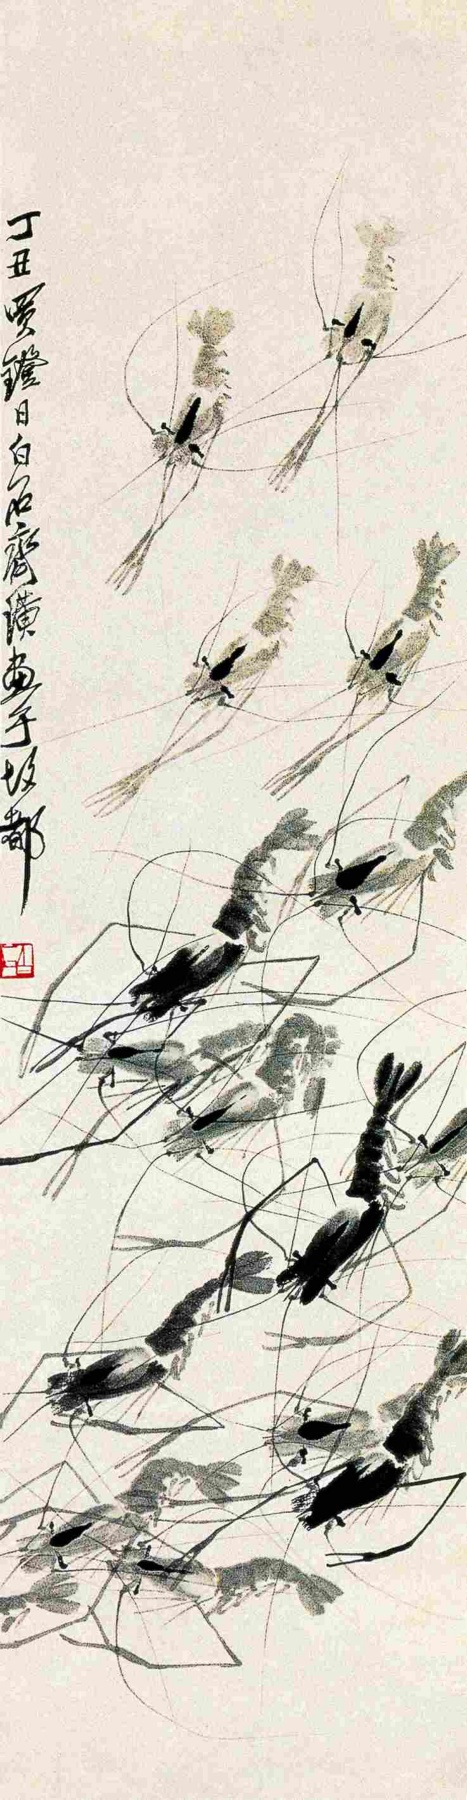 丁丑買鐙日白石齊璜画于故都